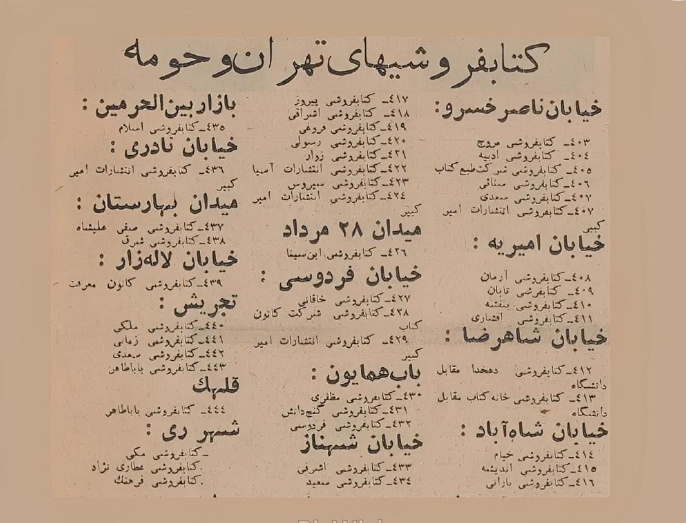 کتابفروشیهای تهران و حومه
خیابان ناصر خسرو:
۴۰۳ـ کتابفروشی مروج
۴۰۴ـ کتابفروشی ادبیه
۴۰۵ـ کتابفروشی شرکت طبع کتاب
۴۰۶ـ کتابفروشی سنائی
۴۰۷ـ کتابفروشی سعدی
۴۰۷ـ کتابفروشی انتشارات امیر
کبیر
خیابان امیریه :
۴۰۸ـ کتابفروشی آرمان
۴۰۹ـ کتابفرشی تابان
۴۱۰ـ کتابفروشی بنفشه
۴۱۱ـ کتابفروشی افشاری
خیابان شاهرضا :
۴۱۲ـ کتابفروشی دهخدا مقابل
دانشگاه
۴۱۳ـ کتابفروشی خانه کتاب مقابل
دانشگاه
خیابان شاه‌آباد :
۴۱۴ـ کتابفروشی خیام
۴۱۵ـ کتابفروشی اندیشه
۴۱۶ـ کتابفروشی بارانی
۴۱۷ـ کتابفروشی پیروز
۴۱۸ـ کتابفروشی اشراقی
۴۱۹ـ کتابفروشی فروغی
۴۲۰ـ کتابفروشی رسولی
۴۲۱ـ کتابفروشی زوار
۴۲۲ـ کتابفروشی انتشارات آسیا
۴۲۳ـ کتابفروشی سیروس
۴۲۴ـ کتابفروشی انتشارات امیر
کبیر
میدان ۲۸ مرداد
۴۲۶ـ کتابفروشی ابن‌سینا
خیابان فردوسی :
۴۲۷ـ کتابفروشی خاقانی
۴۲۸ـ کتابفروشی شرکت کانون
کتاب
۴۲۹ـ کتابفروشی انتشارات امیر
کبیر
باب‌همایون :
۴۳۰ـ کتابفروشی مظفری
۴۳۱ـ کتابفروشی گنج‌دانش
۴۳۲ـ کتابفروشی فردوسی
خیابان شهناز
۴۳۳ـ کتابفروشی اشرفی
۴۳۴ـ کتابفروشی سعید
بازار بین‌الحرمین :
۴۳۵ـ کتابفروشی اسلام
خیابان نادری :
۴۳۶ـ کتابفروشی انتشارات امیر
کبیر
میدان بهارستان :
۴۳۷ـ کتابفروشی صفی علیشاه
۴۳۸ـ کتابفروشی شرق
خیابان لاله‌زار :
۴۳۹ـ کتابفروشی کانون معرفت
تجریش :
۴۴۰ـ کتابفروشی ملکی
۴۴۱ـ کتابفروشی زمانی
۴۴۲ـ کتابفروشی سعدی
۴۴۳ـ کتابفروشی باباطاهر
قلهك
۴۴۴ـ کتابفروشی باباطاهر
شهر ری :
ـ کتابفروشی مکی
کتابفروشی عطاری نژاد
کتابفروشی فرهنك